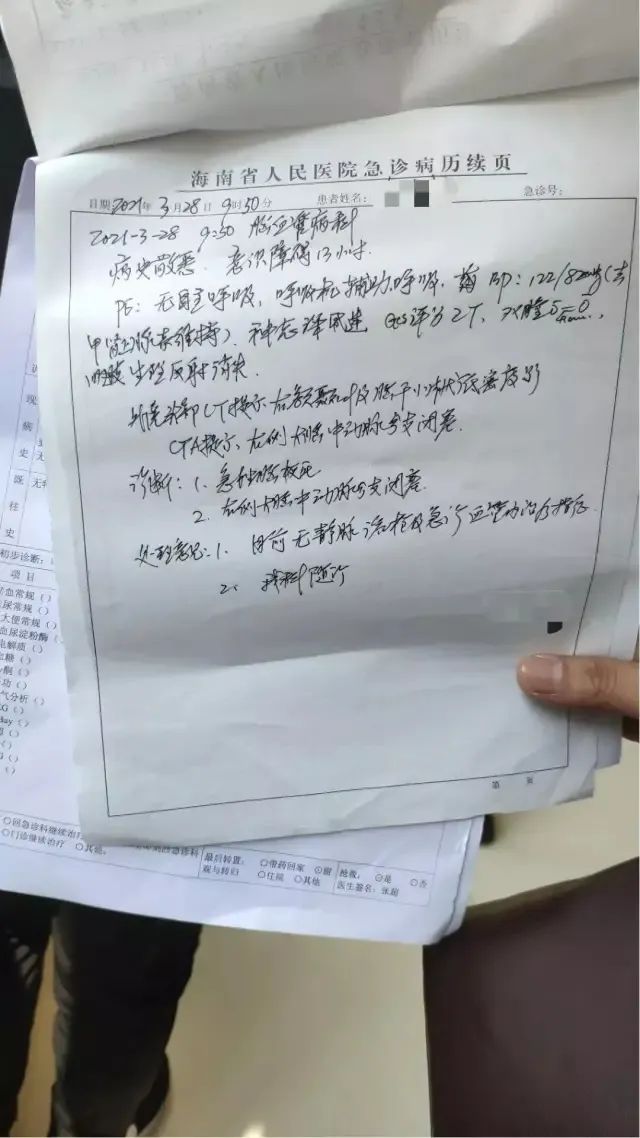 海南省人民医院急诊病历续页
日期2021年3月28日9时50分 患者姓名: 急诊号:
2021-3-28 9:50 脑血管病科
病史敬悉. 意识障碍13小时.
PE: 无自主呼吸, 呼吸机辅助呼吸, BP: 122/82mmHg(去
甲肾上腺素维持). 神志深昏迷 GCS评分2T, 双瞳5
生理反射消失.
头颅CT提示右额颞叶及脑干小脑低密度影
CTA提示右侧大脑中动脉分支闭塞.
诊断: 1. 急性脑梗死
2. 右侧大脑中动脉分支闭塞.
处理意见: 1. 目前无静脉溶栓及急诊血管内治疗指征.
2. 我科随诊
第 页
现
病
史
既
往
史
初步诊断:
项目
血常规 ( )
尿常规 ( )
大便常规 ( )
血尿淀粉酶 ( )
电解质 ( )
血糖 ( )
气分析 ( )
○回急诊科继续治疗
○门诊继续治疗 ○其他.
最后转置: ○带药回家
观与转归 ○住院 ○其他
抢救: ⊙是 ○否
医生签名: 张超